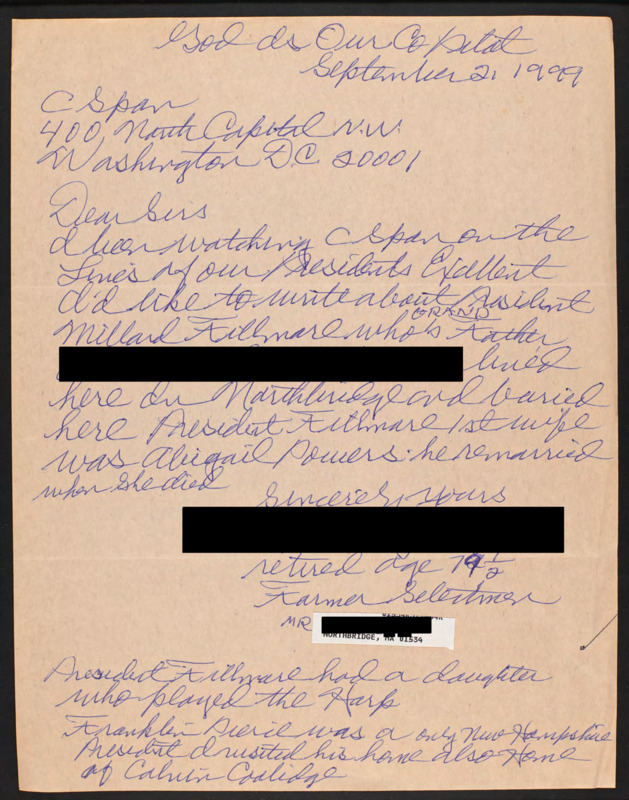 God is Our Co Pilot
September 2, 1999
C Span
400 North Capital N.W.
Washington D.C. 20001
Dear Sirs
I been watching C Span on the
Lives of our Presidents Exellent
I'd like to write about President
GRAND
Millard Fillmore who's Father
lived
here in Northbridge and buried
here President Fillmore 1st wife
was Abigail Powers. he remarried
when she died
Sincerely Yours
retired age 79 1/2
Former Selectmen
MR
NORTHBRIDGE, MA 01534
President Fillmore had a daughter
who played the Harp
Franklin Pierce was a only New Hampshire
President I visited his home also Home
of Calvin Coolidge